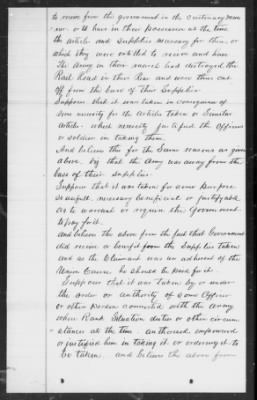 to receive from the government in the customary man
ner or to have in their possession at the time
the articles and supplies necessary for them, or
which they were entitled to receive and have
The Army in their march had destroyed the
Rail Road in their Rear and were then cut
off from the base of their Supplies
Suppose that it was taken in consequence of
some necessity for the articles taken or Similar
Articles which necessity justified the Officers
or soldiers in taking them
And believe this for the Same reasons as given
above, viz that the Army was away from the
base of their supplies
Suppose that it was taken for some purpose
so useful necessary beneficial or justifiable
as to warrant or require the Government
to pay for it.
And believe the above from the fact that Government
did receive a benefit from the Supplies taken
and as the Claimant was an adherent of the
Union Cause he should be paid for it.
Suppose that it was taken by or under
the order or authority of some Officer
or other person connected with the army
whose Rank Situation duties or other circum
stances at the time authorized empowered
or justified him in taking it or ordering it to
be taken. and believe the above from